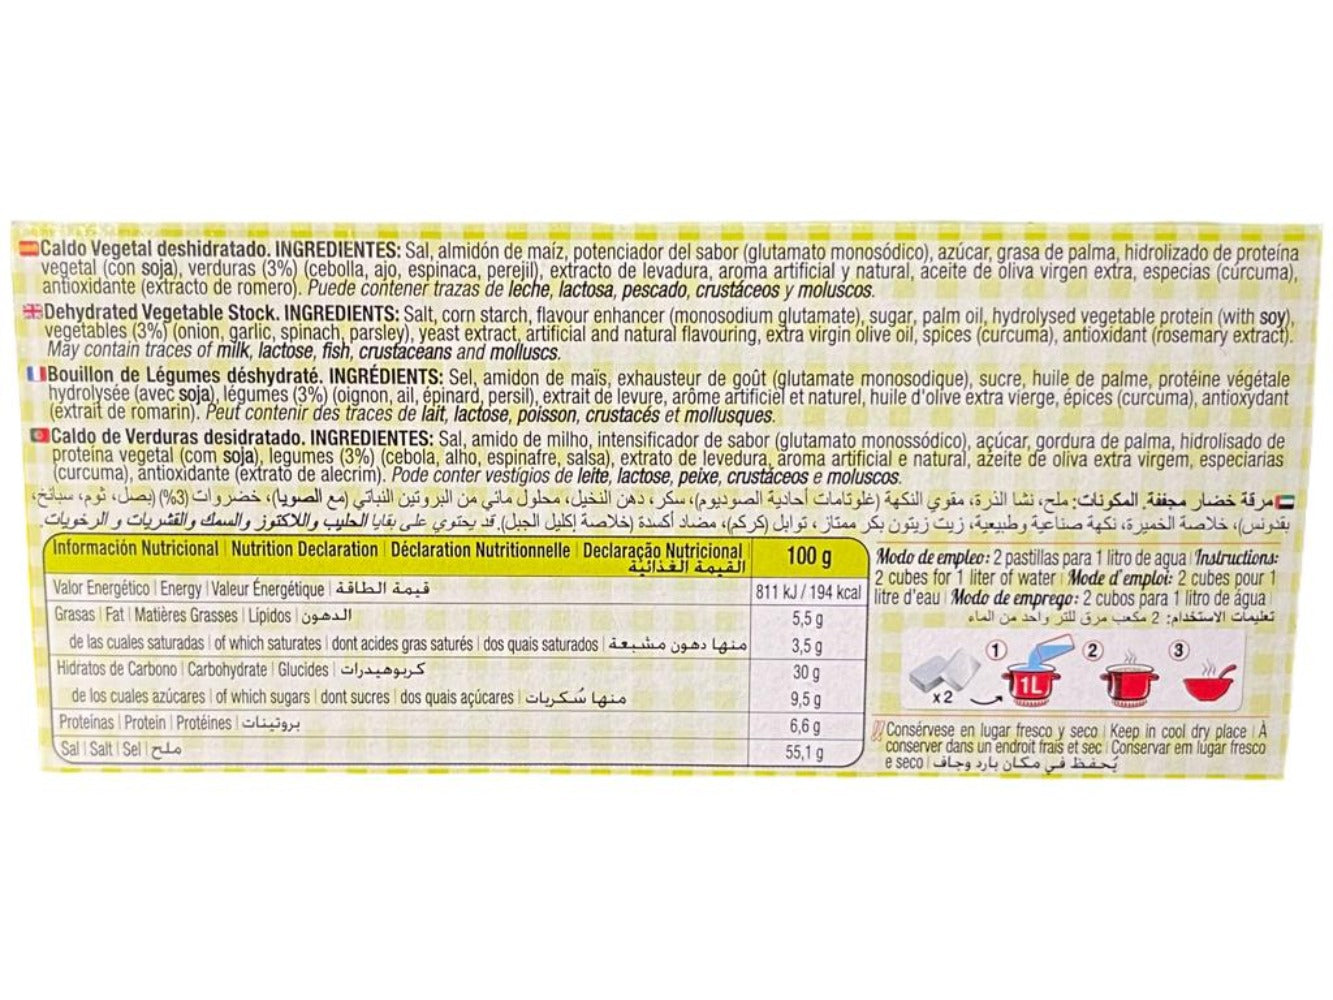 Caldo Vegetal deshidratado. INGREDIENTES: Sal, almidón de maíz, potenciador del sabor (glutamato monosódico), azúcar, grasa de palma, hidrolizado de proteína
vegetal (con soja), verduras (3%) (cebolla, ajo, espinaca, perejil), extracto de levadura, aroma artificial y natural, aceite de oliva virgen extra, especias (cúrcuma),
antioxidante (extracto de romero). Puede contener trazas de leche, lactosa, pescado, crustáceos y moluscos.
Dehydrated Vegetable Stock. INGREDIENTS: Salt, corn starch, flavour enhancer (monosodium glutamate), sugar, palm oil, hydrolysed vegetable protein (with soy),
vegetables (3%) (onion, garlic, spinach, parsley), yeast extract, artificial and natural flavouring, extra virgin olive oil, spices (curcuma), antioxidant (rosemary extract).
May contain traces of milk, lactose, fish, crustaceans and molluscs.
Bouillon de Légumes déshydraté. INGRÉDIENTS: Sel, amidon de maïs, exhausteur de goût (glutamate monosodique), sucre, huile de palme, protéine végétale
hydrolysée (avec soja), légumes (3%) (oignon, ail, épinard, persil), extrait de levure, arôme artificiel et naturel, huile d'olive extra vierge, épices (curcuma), antioxydant
(extrait de romarin). Peut contenir des traces de lait, lactose, poisson, crustacés et mollusques.
Caldo de Verduras desidratado. INGREDIENTES: Sal, amido de milho, intensificador de sabor (glutamato monossódico), açúcar, gordura de palma, hidrolisado de
proteína vegetal (com soja), legumes (3%) (cebola, alho, espinafre, salsa), extrato de levedura, aroma artificial e natural, azeite de oliva extra virgem, especiarias
(curcuma), antioxidante (extrato de alecrim). Pode conter vestígios de leite, lactose, peixe, crustáceos e moluscos.
مرقة خضار مجففة. المكونات: ملح، نشا الذرة، مقوي النكهة (غلوتامات أحادية الصوديوم)، سكر، دهن النخيل، محلول مائي من البروتين النباتي (مع الصويا)، خضروات (3%) (بصل، ثوم، سبانخ،
بقدونس)، خلاصة الخميرة، نكهة صناعية وطبيعية، زيت زيتون بكر ممتاز، توابل (كركم)، مضاد أكسدة (خلاصة إكليل الجبل). قد يحتوي على بقايا الحليب واللاكتوز والسمك والقشريات و الرخويات.
Información Nutricional | Nutrition Declaration | Déclaration Nutritionnelle | Declaração Nutricional 100 g
القيمة الغذائية
Valor Energético | Energy | Valeur Énergétique | قيمة الطاقة 811 kJ / 194 kcal
Grasas | Fat | Matières Grasses | Lípidos | الدهون 5,5 g
de las cuales saturadas | of which saturates | dont acides gras saturés | dos quais saturados | منها دهون مشبعة 3,5 g
Hidratos de Carbono | Carbohydrate | Glucides | كربوهيدرات 30 g
de los cuales azúcares | of which sugars | dont sucres | dos quais açúcares | منها سُكريات 9,5 g
Proteínas | Protein | Protéines | بروتينات 6,6 g
Sal | Salt | Sel | ملح 55,1 g
Modo de empleo: 2 pastillas para 1 litro de agua | Instructions:
2 cubes for 1 liter of water | Mode d'emploi: 2 cubes pour 1
litre d'eau | Modo de emprego: 2 cubos para 1 litro de água |
تعليمات الاستخدام: 2 مكعب مرق للتر واحد من الماء
1 2 3
x2 1L
Consérvese en lugar fresco y seco | Keep in cool dry place | À
conserver dans un endroit frais et sec | Conservar em lugar fresco
e seco | يُحفظ في مكان بارد وجاف